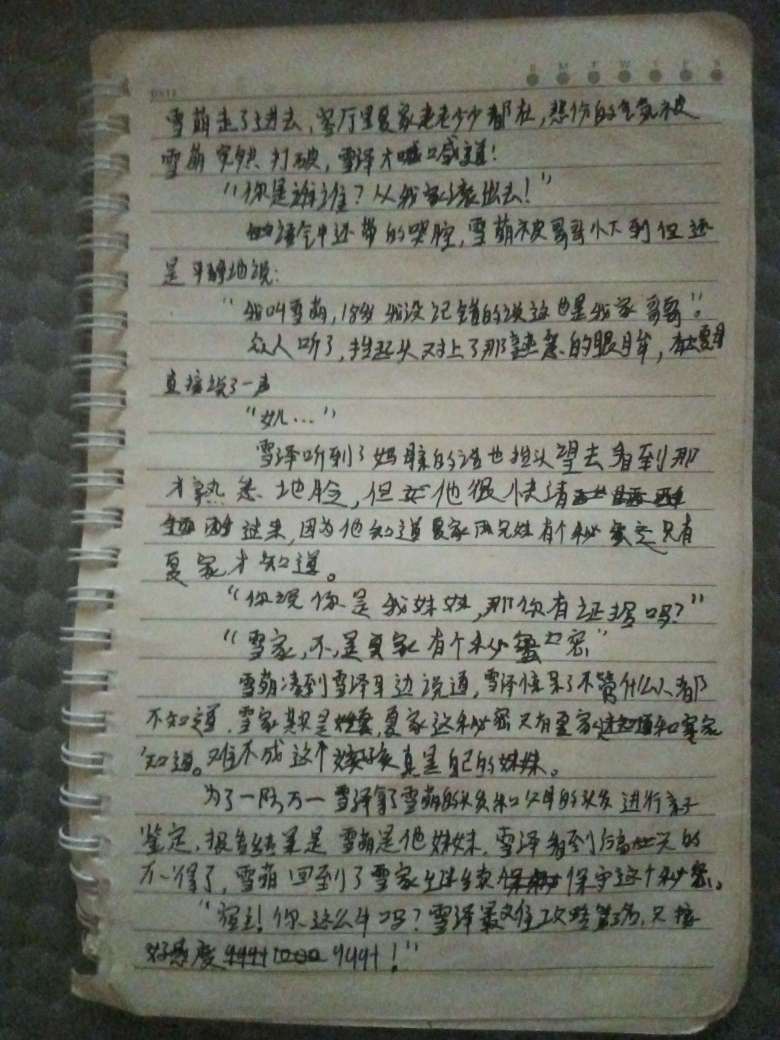 雪萌走了进去，客厅里夏家老老少少都在，悲伤的气氛被
雪萌突然打破，雪泽大喊喊道！
“你是谁谁？从我家滚出去！”
语气中还带的哭腔，雪萌被哥哥吓到但还
是平静地说：
“我叫雪萌，18岁我没记错的话这也是我家哥哥”。
众人听了，抬起头对上了那熟悉的眼眸，
直接说了一声
“女儿…”
雪泽听到了妈妈的话也抬头望去看到那
才熟悉地脸，但他很快清
醒过来，因为他知道夏家两兄妹有个秘密只有
夏家才知道。
“你说你是我妹妹，那你有证据吗？”
“雪家，不，是夏家有个秘密”
雪萌凑到雪泽耳边说道，雪泽惊呆了不管什么人都
不知道，雪家其实是，夏家这秘密只有夏家
知道。难不成这个女孩真是自己的妹妹。
为了一防万一雪泽拿了雪萌的头发和父母的头发进行亲子
鉴定，报告结果是雪萌是他妹妹，雪泽看到后高兴的
不得了，雪萌回到了雪家继续保守这个秘密。
“宿主！你这么牛吗？雪泽最难攻略，只接
好感度9991！”